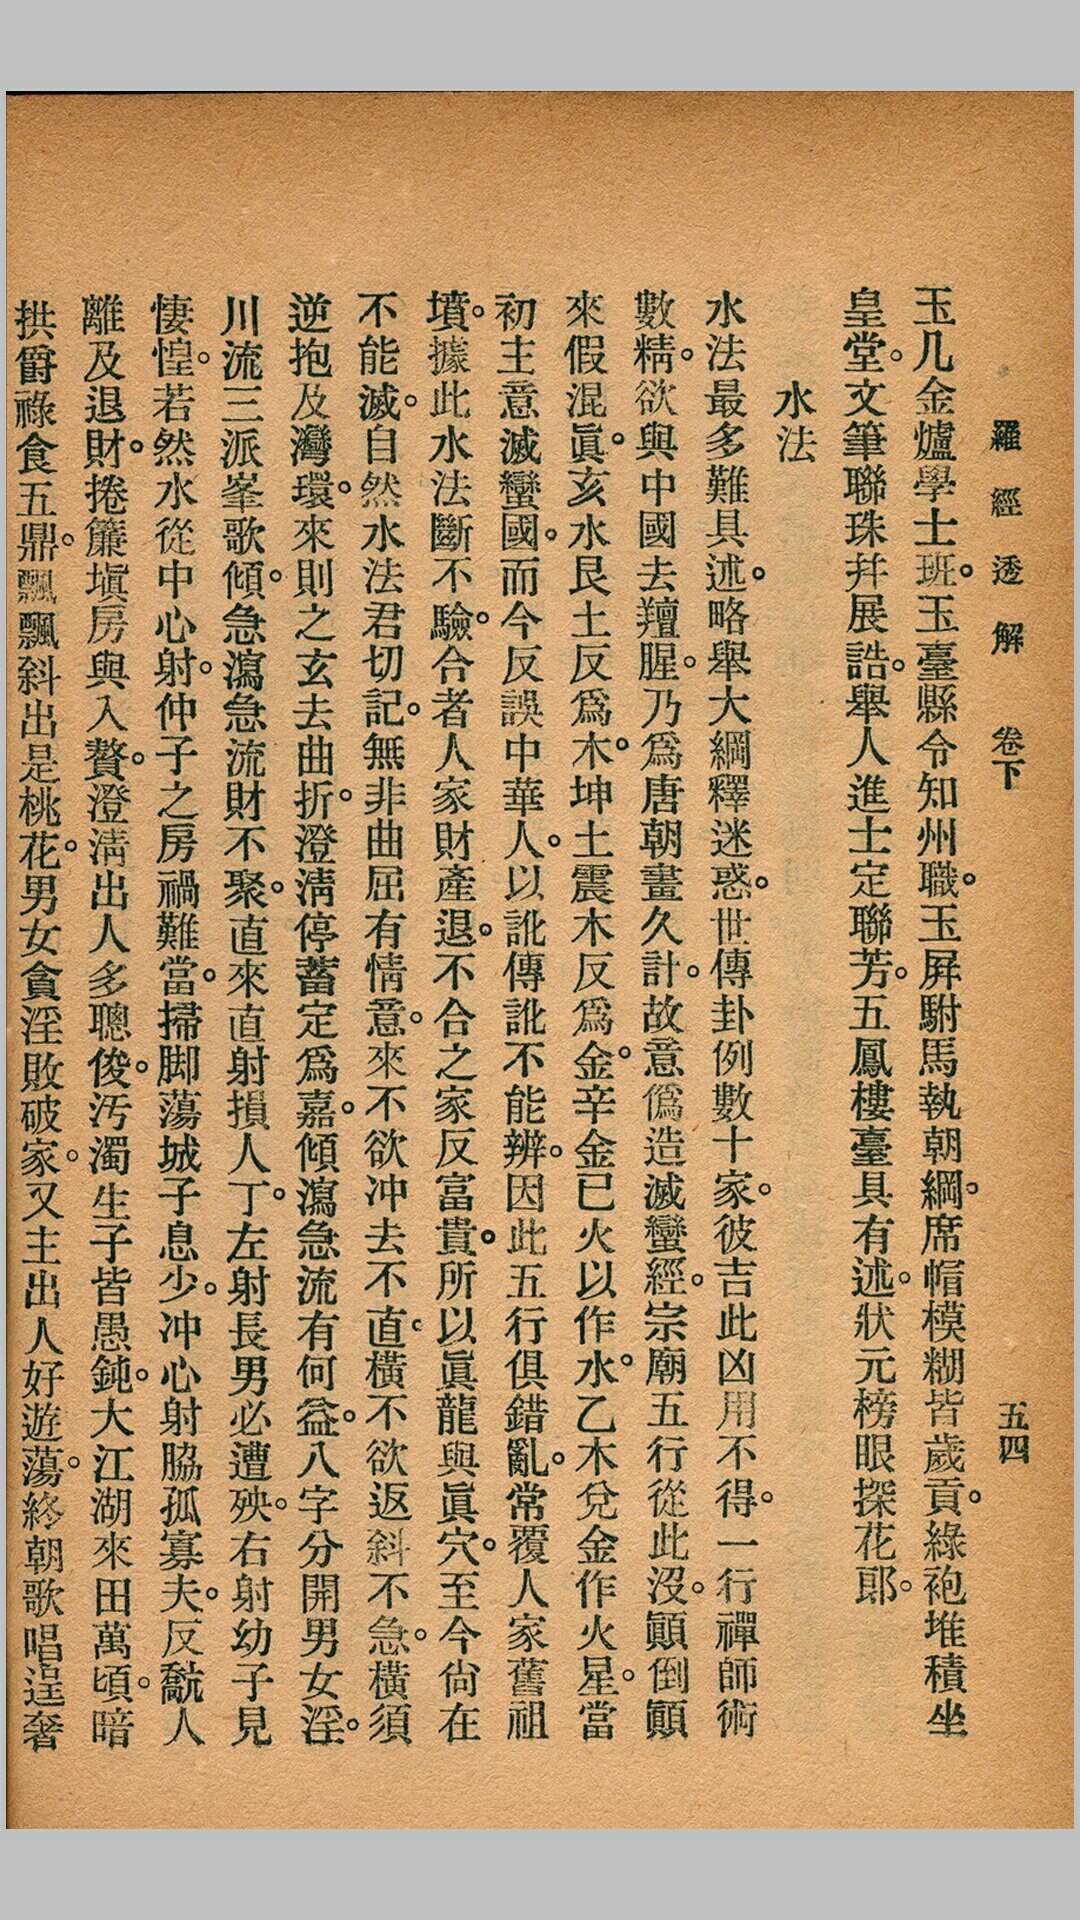 羅經透解 卷下 五四
玉几金爐學士班。玉臺縣令知州職。玉屏駙馬執朝綱。席帽模糊皆歲貢。綠袍堆積坐
皇堂。文筆聯珠幷展誥。舉人進士定聯芳。五鳳樓臺具有述。狀元榜眼探花郞。
水法
水法最多難具述。略舉大綱釋迷惑。世傳卦例數十家。彼吉此凶用不得。一行禪師術
數精。欲與中國去羶腥。乃爲唐朝畫久計。故意僞造滅蠻經。宗廟五行從此沒。顚倒顚
來假混眞。亥水艮土反爲木。坤土震木反爲金。辛金巳火以作水。乙木兌金作火星。當
初主意滅蠻國。而今反誤中華人。以訛傳訛不能辨。因此五行俱錯亂。常覆人家舊祖
墳。據此水法斷不驗。合者人家財產退。不合之家反富貴。所以眞龍與眞穴。至今尙在
不能滅。自然水法君切記。無非曲屈有情意。來不欲冲去不直。橫不欲返斜不急。橫須
逆抱及灣環。來則之玄去曲折。澄淸停蓄定爲嘉。傾瀉急流有何益。八字分開男女淫。
川流三派峯歌傾。急瀉急流財不聚。直來直射損人丁。左射長男必遭殃。右射幼子見
悽惶。若然水從中心射。仲子之房禍難當。掃脚蕩城子息少。冲心射脇孤寡夫。反飜人
離及退財。捲簾塡房與入贅。澄淸出人多聰俊。汚濁生子皆愚鈍。大江湖來田萬頃。暗
拱爵祿食五鼎。飄飄斜出是桃花。男女貪淫敗破家。又主出人好遊蕩。終朝歌唱逞奢